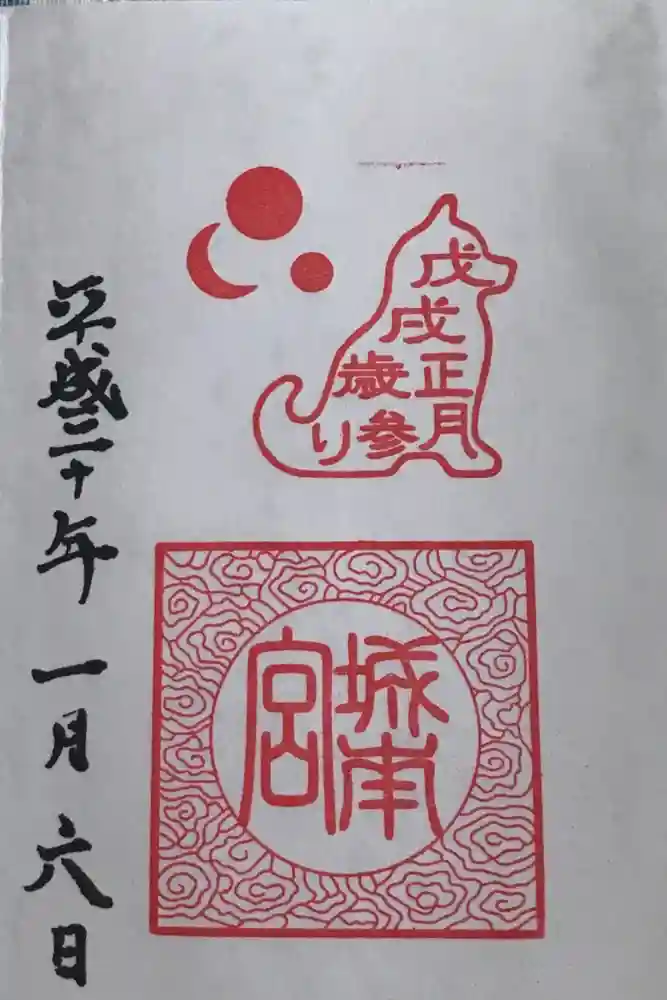 戊戌
正月
歳参り
城南
宮
平成三十年一月六日